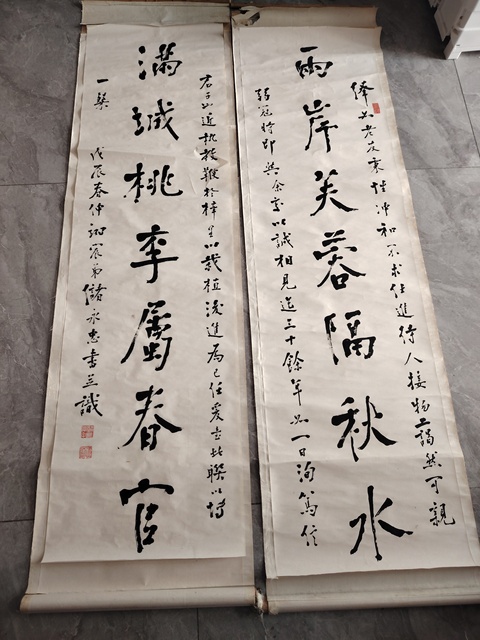 如老友秉性沖和不求仕進待人接物藹然可親
兩岸芙蓉隔秋水
弱冠時即與余交以誠相見迄三十餘年如一日洵篤信
君子也近執教於梓里以栽植後進為己任爰書此聯以博
滿城桃李屬春官
一粲 戊辰春仲弟儲永惠書並識